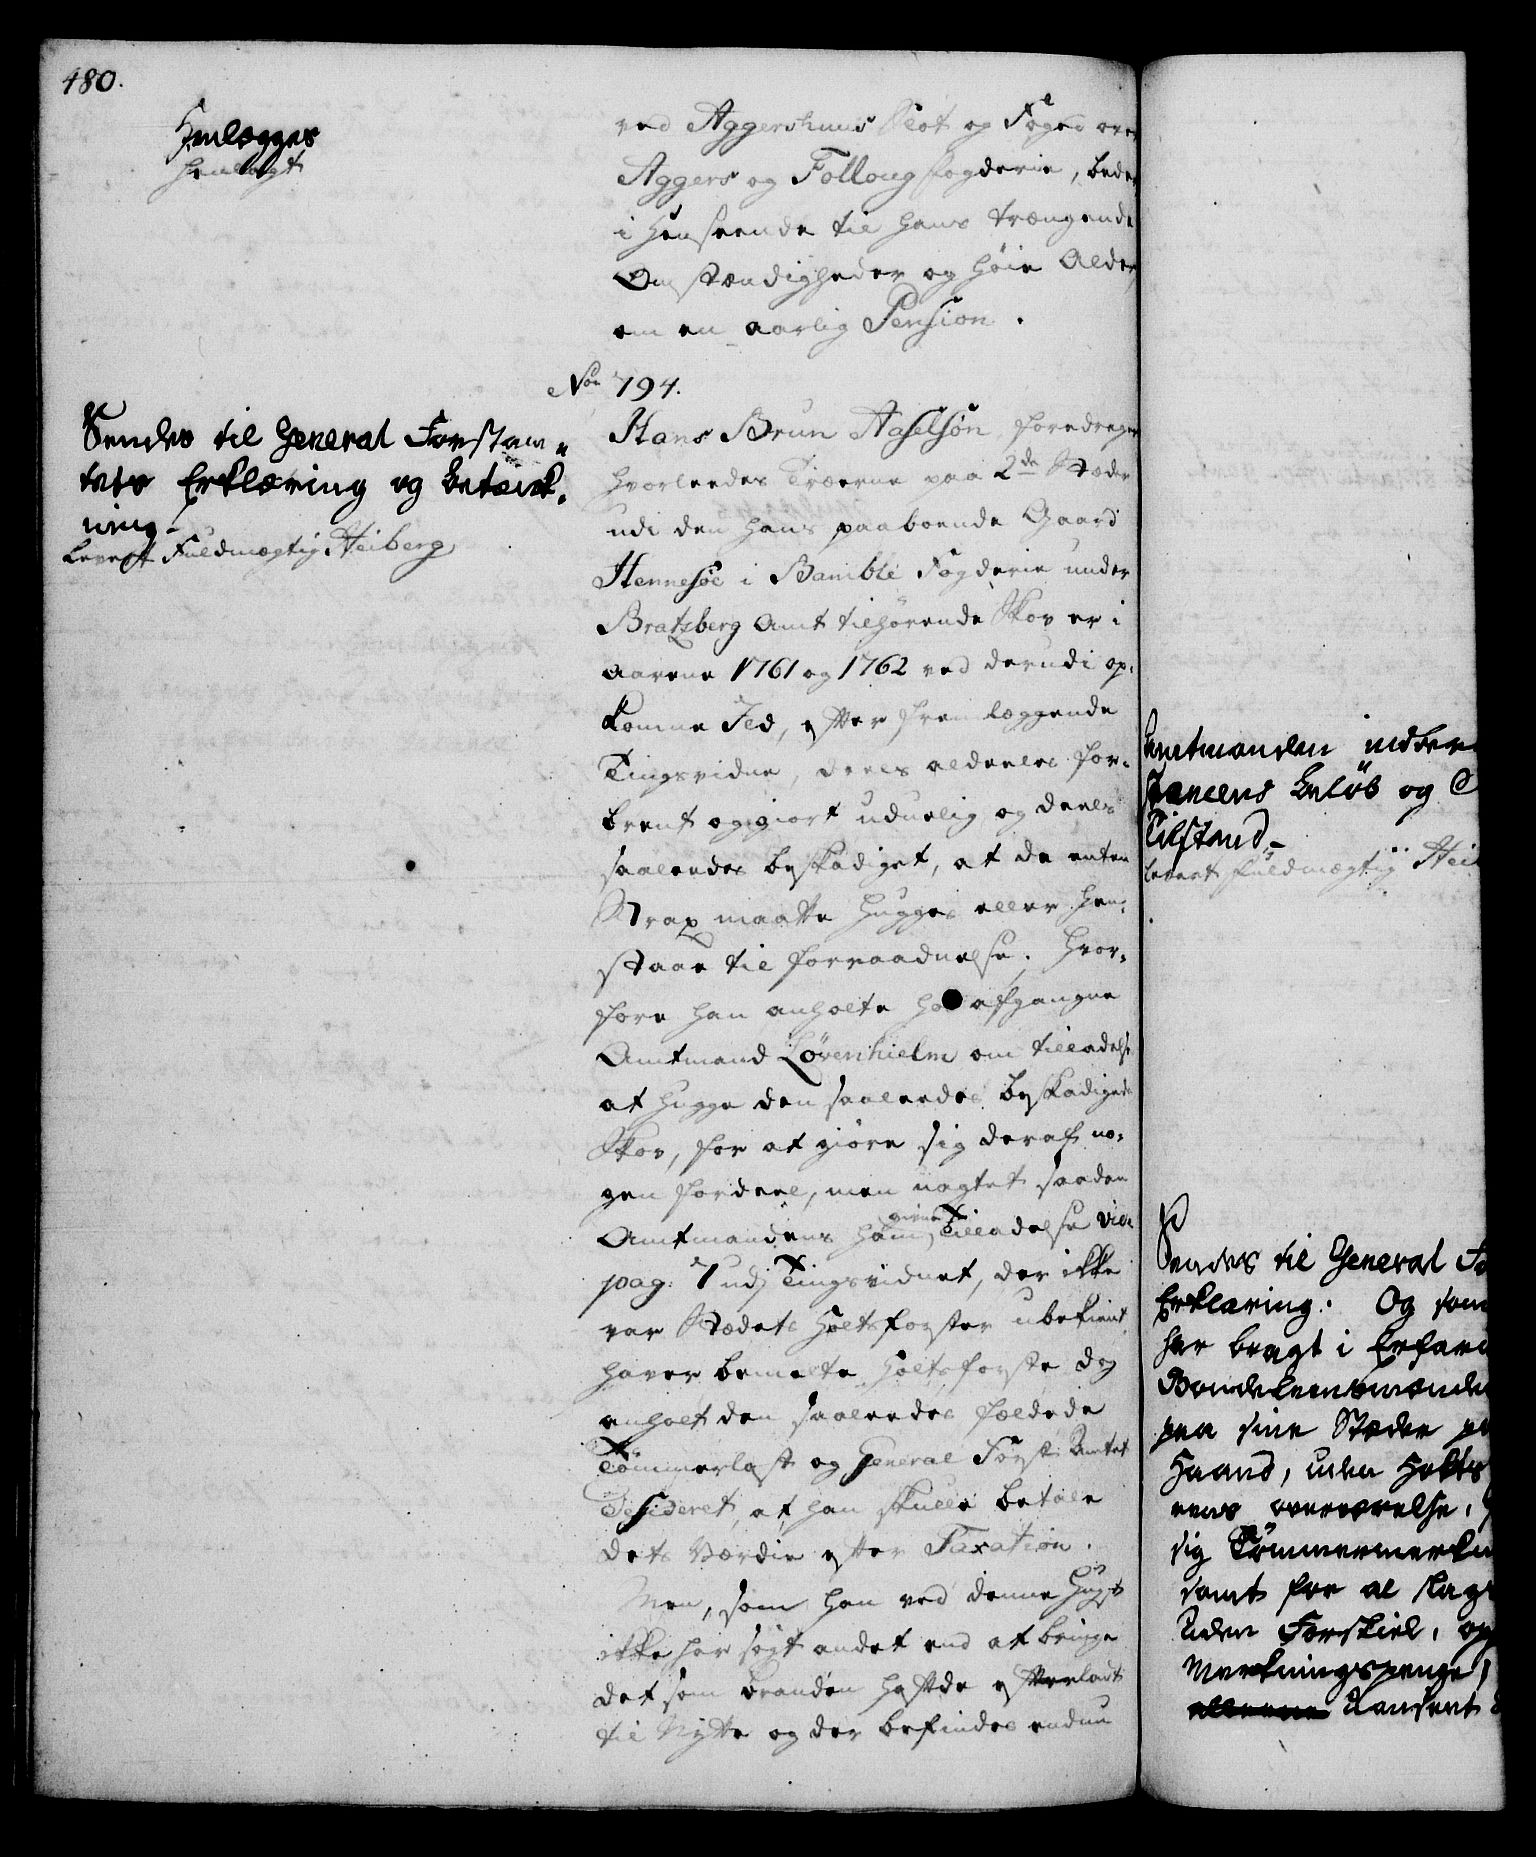 480.
Henlægges
henlagt
ved Aggershuus Slot og Foged over
Aggers og Folloug fogderie, beder
i Henseende til hans trængende
Omstændigheder og høie Alder,
om en aarlig Pension.
No 794.
Sendes til General Forstam-
tets Erklæring og Betænk-
ning.
Levert Fuldmægtig Heiberg
Hans Brun Aaselsøn foredrager
hvorleedes Træerne paa 2de Stæder
udi den hans paaboende Gaard
Hennesøe i Bamble Fogderie under
Bratzberg Amt tilhørende Skov er i
aarene 1761 og 1762 ved derudi op-
komne Ild, efter fremlæggende
Tingsvidne, deels aldeeles for-
brent og giort uduelig og deels
saaleedes beskadiget, at de enten
Strax maatte hugges eller hen-
staae til forraadnelse; hvor-
fore han anholte hos afgangne
Amtmand Løvenhielm om tilladelse
at hugge den saaleedes beskadigede
Skov, for at giøre sig deraf no-
gen fordeel, men uagtet saadan
Amtmandens ham givne Tilladelse vide
pag: 7 udj Tingsvidnet, der ikke
var Stædets Holtsforster ubekient,
haver bemelte Holtsforste dog
anholt den saaleedes fældede
Tømmerlast og General Forst Amtet
Desideret, at han skulle betale
dets Værdie efter Taxation.
Men, som han ved denne Hugst
ikke har søgt andet end at bringe
det som branden hafde efterladt
til Nytte og der befindes endnu
Amtmanden indber
Tilstand.
levert fuldmægtig Hei
Sendes til General Fo
Erklæring. Og som
har bragt i Erfar
Bondelensmænde
paa sine Stæder p
Haand, uden Holts
eens overværelse,
sig Tømmermerkn
samt for al slags
Uden Forskiel, op
Merkningspenge,